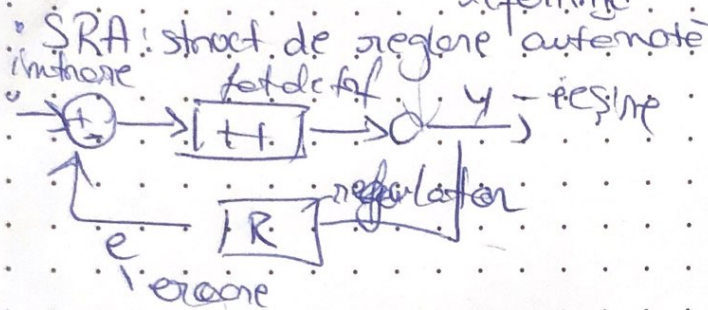 SRA: struct. de reglare automată
intrare
fct de tsf
+
-
H
y - ieșire
regulator
R
e
eroare